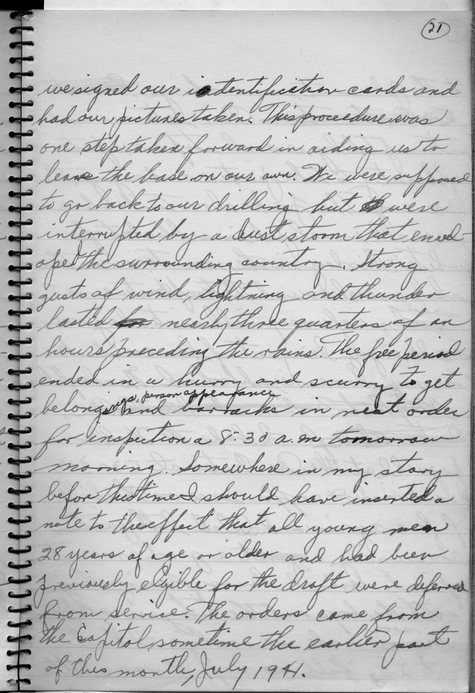 21
we signed our identification cards and
had our pictures taken. This procedure was
one step taken forward in aiding us to
leave the base on our own. We were supposed
to go back to our drilling but were
interrupted by a dust storm that envel-
oped the surrounding country. Strong
gusts of wind, lightning and thunder
lasted nearly three quarters of an
hour, preceding the rains. The free period
ended in a hurry and scurry to get
belongings, person appearance
and barracks in neat order
for inspection a 8:30 a.m tomorrow
morning. Somewhere in my story
befor this time I should have inserted a
note to the effect that all young men
28 years of age or older and had been
previously eligible for the draft were deferred
from service. The orders came from
the Capitol, sometime the earlier part
of this month, July 1941.